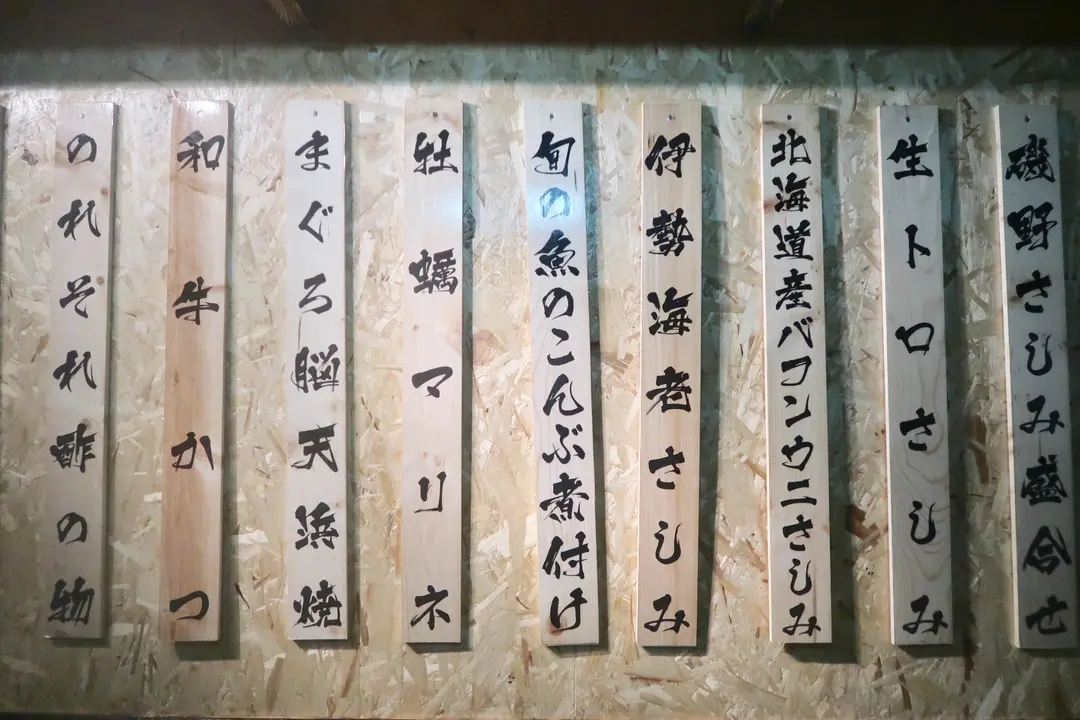 磯野さしみ盛合せ
生トロさしみ
北海道産バフンウニさしみ
伊勢海老さしみ
旬の魚のこんぶ煮付け
牡蠣マリネ
まぐろ脳天浜焼
和牛かつ
のれそれ酢の物